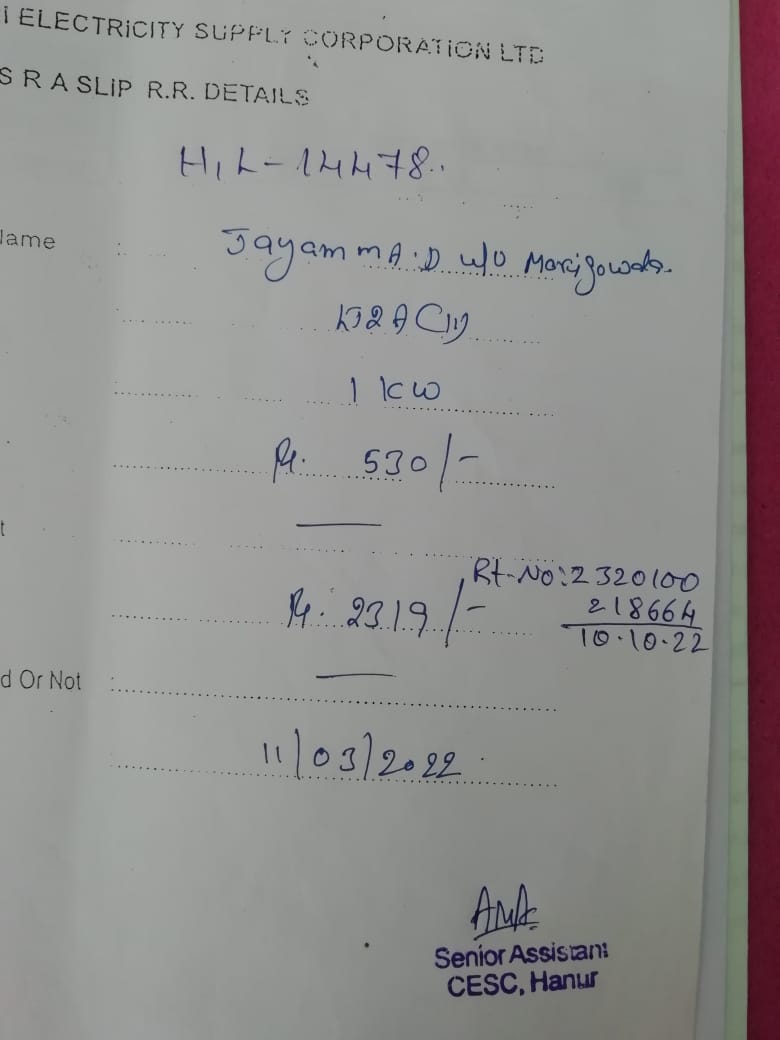 i ELECTRICITY SUPPLY CORPORATION LTD
S R A SLIP R.R. DETAILS
H,L-14478.
Name : JayammA.D w/o Marigowda.
LT2A(ii)
1 KW
Rs. 530/-
t
Rt-No:2320100
218664
Rs. 2319/-
10.10.22
d Or Not :
11/03/2022
Senior Assistant
CESC, Hanur